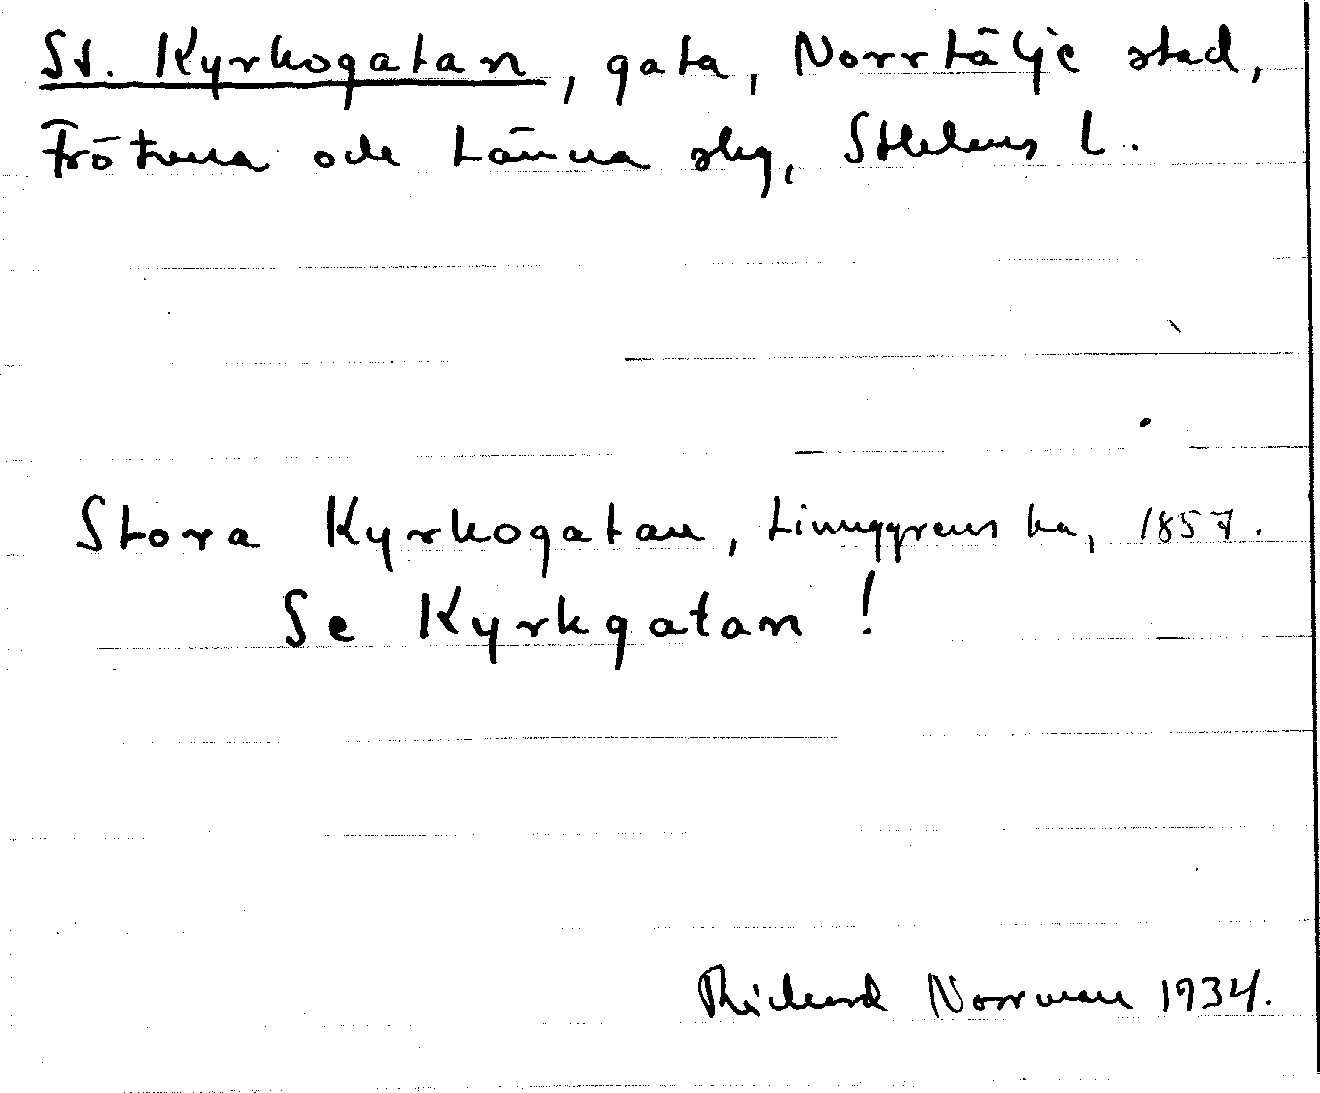 St. Kyrkogatan, gata, Norrtälje stad,
Frötuna och Länna skg, Sthlms L.
Stora Kyrkogatan, ka, 1857.
Se Kyrkgatan!
Richard Norrman 1934.